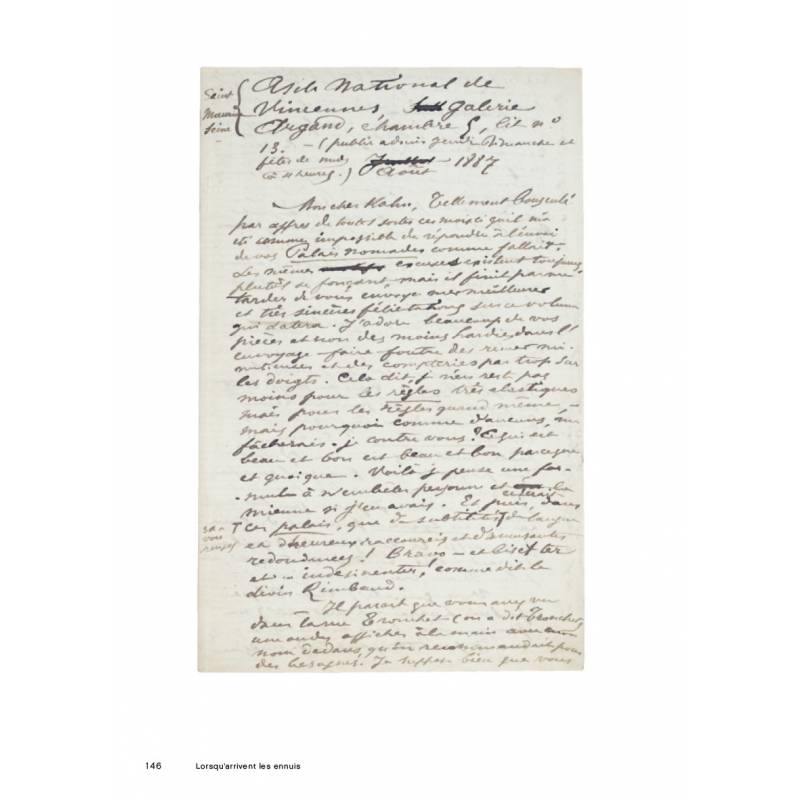 Saint
Maurice
Seine
Asile National de
Vincennes Galerie
Argand, chambre 5, lit no
13. — (public admis jeudi Dimanche et
fêtes de midi Juillet — 1887
à 4 heures.) Août
Mon cher Kahn, Tellement bousculé
par affres de toutes sortes ces mois-ci qu'il m'a
été comme impossible de répondre à l'envoi
de vos Palais nomades comme fallait.
Les mêmes excuses existent toujours
plutôt se fonçant, mais il finit par me
tarder de vous envoyer mes meilleures
et très sincères félicitations sur ce volume
qui datera. J'adore beaucoup de vos
pièces et non des moins hardies dans l'
envoyage-faire-foutre des rimes mi-
nutieuses et des compteries par trop sur
les doigts. Cela dit, je n'en reste pas
moins pour les règles très élastiques
mais pour les règles quand même, —
mais pourquoi comme d'aucuns, me
fâcherais-je contre vous? Ce qui est
beau et bon est beau et bon parce que
et quoique. Voilà je pense une for-
mule à n'embêter personne et la
mienne si j'en avais. Et puis, dans
ces palais, que de subtilités de langue
et d'heureux raccourcis et d'amusantes
redondances! Bravo — et bis et ter
et — indesinenter! comme dit le
divin Rimbaud.
Il paraît que vous avez vu
dans la rue Tronchet (on a dit Tronchet)
une ou des affiches à la main avec mon
nom dedans, qu'on recommandait pour
des besognes. Je suppose bien que vous
146 Lorsqu'arrivent les ennuis